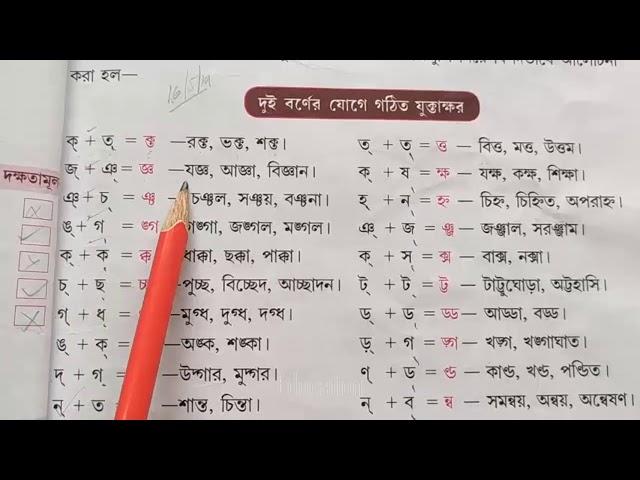 করা হল—
16/5/19
দুই বর্ণের যোগে গঠিত যুক্তাক্ষর
দক্ষতামূল
ক্ + ত্ = ক্ত —রক্ত, ভক্ত, শক্ত।
জ্ + ঞ্ = জ্ঞ —যজ্ঞ, আজ্ঞা, বিজ্ঞান।
ঞ্ + চ্ = ঞ্চ —চঞ্চল, সঞ্চয়, বঞ্চনা।
ঙ্ + গ্ = ঙ্গ গঙ্গা, জঙ্গল, মঙ্গল।
ক্ + ক্ = ক্ক ধাক্কা, ছক্কা, পাক্কা।
চ্ + ছ্ = চ্ছ —পুচ্ছ, বিচ্ছেদ, আচ্ছাদন।
গ্ + ধ্ = —মুগ্ধ, দুগ্ধ, দগ্ধ।
ঙ্ + ক্ = —অঙ্ক, শঙ্কা।
দ্ + গ্ = —উদ্গার, মুদ্গর।
ন্ + ত = —শান্ত, চিন্তা।
ত্ + ত্ = ত্ত — বিত্ত, মত্ত, উত্তম।
ক্ + ষ = ক্ষ — যক্ষ, কক্ষ, শিক্ষা।
হ্ + ন = হ্ন — চিহ্ন, চিহ্নিত, অপরাহ্ন।
ঞ্ + জ্ = ঞ্জ — জঞ্জাল, সরঞ্জাম।
ক্ + স্ = ক্স — বাক্স, নক্সা।
ট্ + ট্ = ট্ট — টাট্টুঘোড়া, অট্টহাসি।
ড্ + ড্ = ড্ড — আড্ডা, বড্ড।
ড়্ + গ = ড়্গ — খড়্গ, খড়্গাঘাত।
ণ্ + ড = ণ্ড — কাণ্ড, খণ্ড, পণ্ডিত।
ন্ + ব্ = ন্ব — সমন্বয়, অন্বয়, অন্বেষণ।